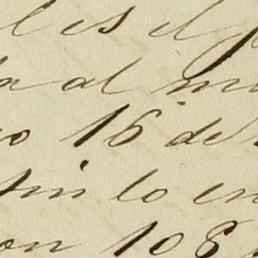 l es el p
la al m
o 16 de
sin lo en
on 108